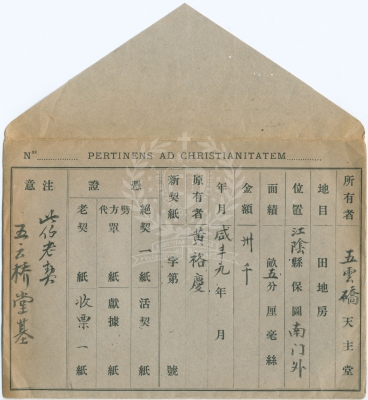 Nº PERTINENS AD CHRISTIANITATEM
所有者 五雲橋 天主堂
地目 田地房
位置 江陰縣保圖南门外
面積 畝五分厘毫絲
金額 卅千
年月 咸丰九年 月
原有者 黄裕慶
新契紙 字第 號
憑證
絕契一紙 活契 紙
勞方代單 紙 獻據 紙
老契 紙 收票一紙
注意
此係老契
五云橋堂基